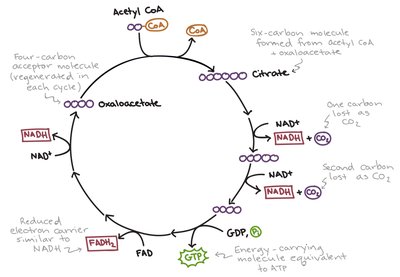 Acetyl CoA
CoA
CoA
Six-carbon molecule
formed from acetyl CoA
+ oxaloacetate
Four-carbon
acceptor molecule
(regenerated in
each cycle)
Citrate
Oxaloacetate
One carbon
lost as
CO₂
NAD+
NADH + CO₂
NADH
NAD+
Second carbon
lost as CO₂
NAD+
NADH + CO₂
Reduced
electron carrier
similar to
NADH
FADH₂
FAD
GDP, Pi
GTP
Energy-carrying
molecule equivalent
to ATP